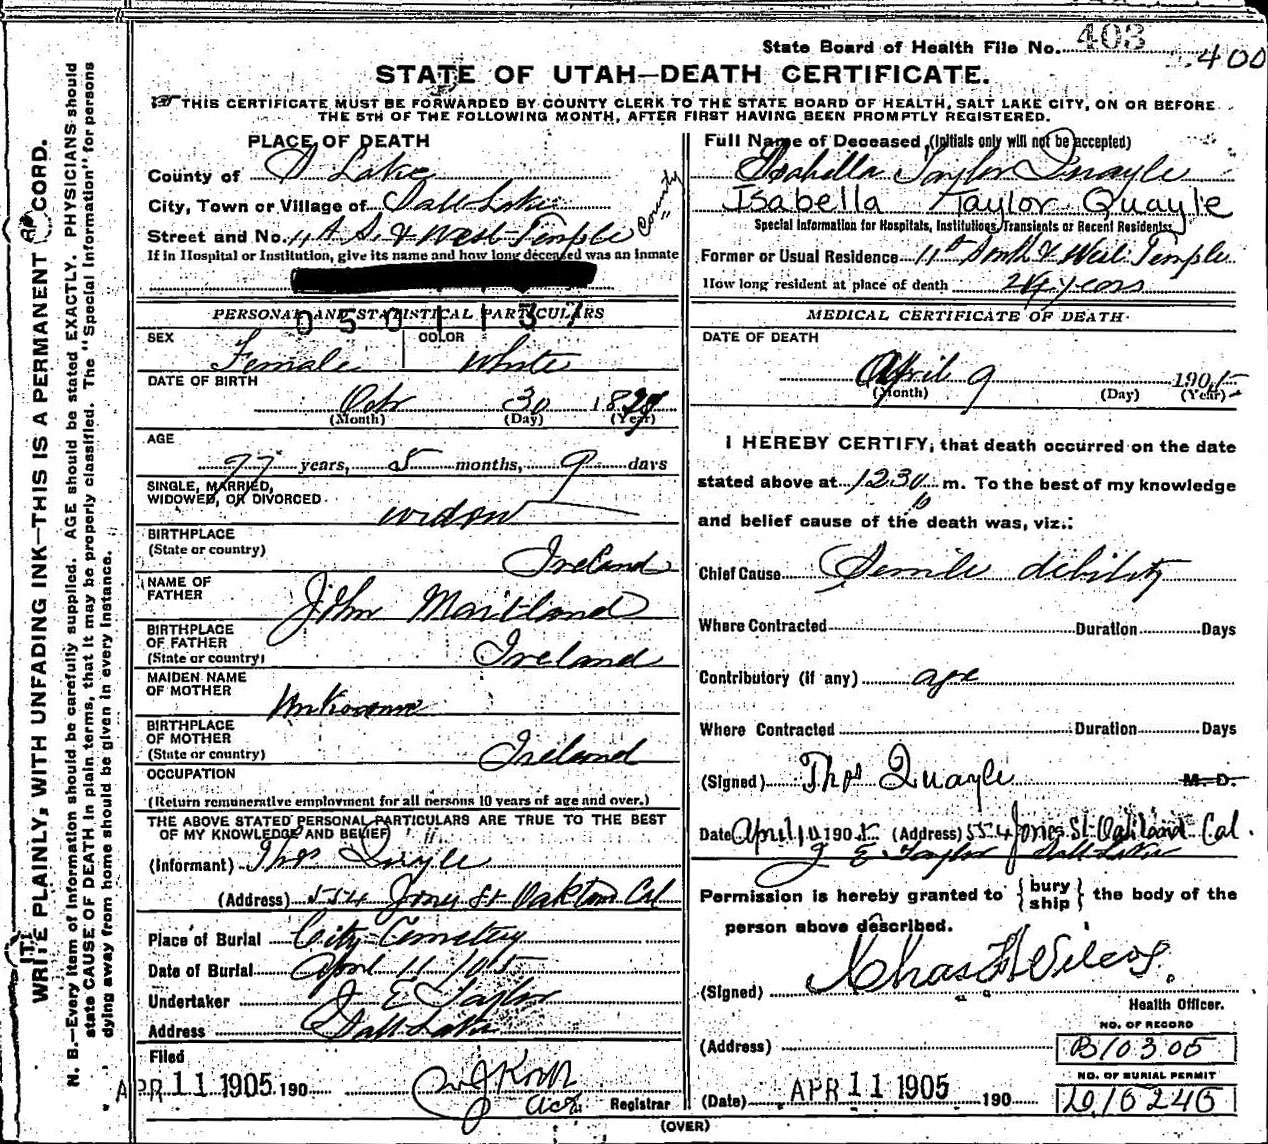 State Board of Health File No. 403
400
STATE OF UTAH—DEATH CERTIFICATE.
THIS CERTIFICATE MUST BE FORWARDED BY COUNTY CLERK TO THE STATE BOARD OF HEALTH, SALT LAKE CITY, ON OR BEFORE
THE 5TH OF THE FOLLOWING MONTH, AFTER FIRST HAVING BEEN PROMPTLY REGISTERED.
WRITE PLAINLY, WITH UNFADING INK—THIS IS A PERMANENT RECORD.
N. B.—Every item of information should be carefully supplied. AGE should be stated EXACTLY. PHYSICIANS should
state CAUSE OF DEATH in plain terms, that it may be properly classified. The "Special Information" for persons
dying away from home should be given in every instance.
PLACE OF DEATH
County of S Lake
City, Town or Village of Salt Lake County
Street and No. 11th S. & West Temple
If in Hospital or Institution, give its name and how long deceased was an inmate
0501137
PERSONAL AND STATISTICAL PARTICULARS
SEX
COLOR
Female White
DATE OF BIRTH
Oct 30 1827
(Month) (Day) (Year)
AGE
77 years, 5 months, 9 days
SINGLE, MARRIED,
WIDOWED, OR DIVORCED
widow
BIRTHPLACE
(State or country)
Ireland
NAME OF
FATHER
John Maitland
BIRTHPLACE
OF FATHER
(State or country)
Ireland
MAIDEN NAME
OF MOTHER
Unknown
BIRTHPLACE
OF MOTHER
(State or country)
Ireland
OCCUPATION
(Return remunerative employment for all persons 10 years of age and over.)
THE ABOVE STATED PERSONAL PARTICULARS ARE TRUE TO THE BEST
OF MY KNOWLEDGE AND BELIEF
(Informant) Thos Quayle
(Address) 554 Jones St Oakland Cal
Place of Burial City Cemetery
Date of Burial April 11 1905
Undertaker J E Taylor
Address Salt Lake
Filed
APR 11 1905 190
Registrar
Full Name of Deceased (Initials only will not be accepted)
Isabella Taylor Quayle
Isabella Taylor Quayle
Special Information for Hospitals, Institutions, Transients or Recent Residents:
Former or Usual Residence 11th South & West Temple
How long resident at place of death 24 years
MEDICAL CERTIFICATE OF DEATH
DATE OF DEATH
April 9 1905
(Month) (Day) (Year)
I HEREBY CERTIFY, that death occurred on the date
stated above at 1230 p m. To the best of my knowledge
and belief cause of the death was, viz.:
Chief Cause Senile debility
Where Contracted Duration Days
Contributory (if any) age
Where Contracted Duration Days
(Signed) Thos Quayle M. D.
Date April 10 1905 (Address) 554 Jones St. Oakland Cal.
J E Taylor Salt Lake
Permission is hereby granted to { bury ship } the body of the
person above described.
(Signed) Chas F Wilcox
Health Officer.
NO. OF RECORD
(Address) B10305
NO. OF BURIAL PERMIT
(Date) APR 11 1905 190
(OVER)